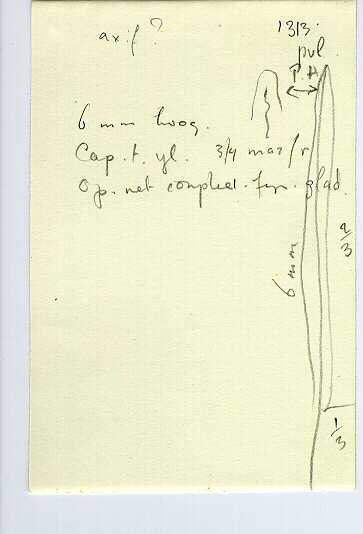 ax.f?
1313.
pvl
P.A
6 mm hoog.
Cap. t. yl. 3/4 mar/r
Op. net compleet. fyn. glad.
6 mm
2/3
1/3